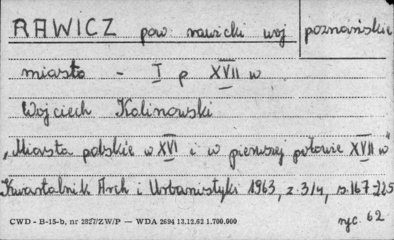 RAWICZ pow rawicki woj poznańskie
miasto - I p XVII w
Wojciech Kalinowski
„Miasta polskie w XVI i w pierwszej połowie XVII w"
Kwartalnik Arch i Urbanistyki 1963, z. 3/4, s. 167-225
ryc. 62
CWD - B-15-b, nr 2827/ZW/P — WDA 2694 13.12.62 1.700.000